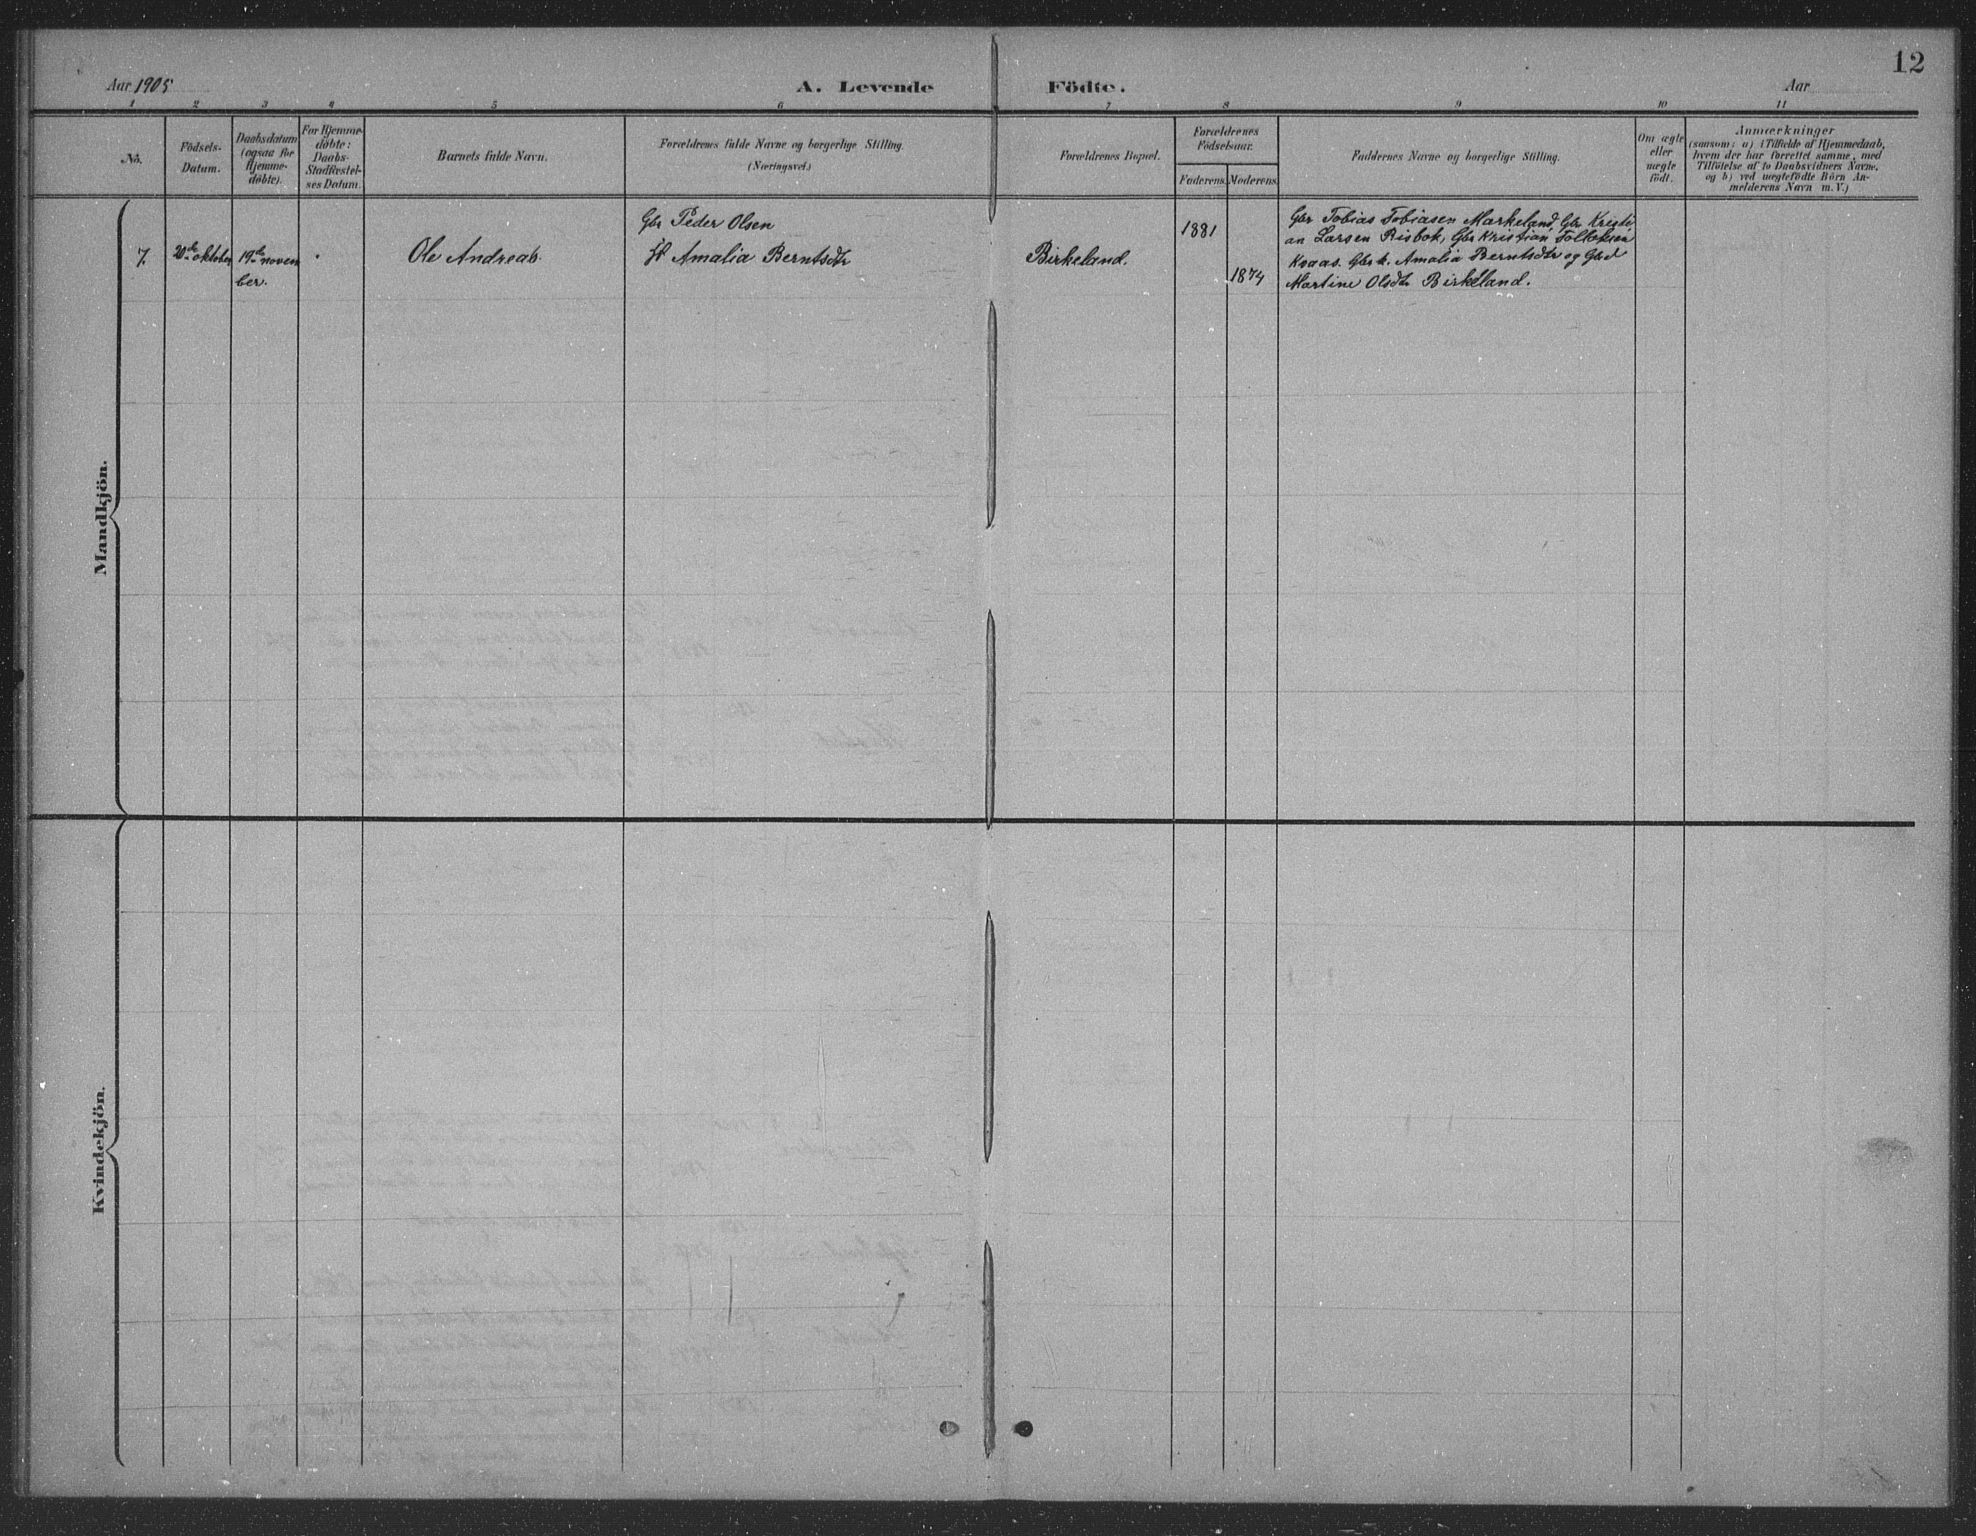 12
Aar 1905
A. Levende Födte.
Aar
1 2 3 4 5 6 7 8 9 10 11
No.
Födsels-
Datum.
Daabsdatum
(ogsaa for
Hjemme-
döbte).
For Hjemme-
döbte:
Daabs-
Stadfæstel-
ses Datum.
Barnets fulde Navn.
Forældrenes fulde Navne og borgerlige Stilling.
(Næringsvei.)
Forældrenes Bopæl.
Forældrenes
Födselsaar.
Faderens. Moderens.
Faddernes Navne og borgerlige Stilling.
Om ægte
eller
uægte
födt.
Anmærkninger
(saasom: a) i Tilfælde af Hjemmedaab,
hvem der har forrettet samme, med
Tilföielse af to Daabsvidners Navne,
og b) ved uægtefödte Börn An-
melderens Navn m. V.)
Mandkjön.
7.
20de oktober
19de novem
ber.
Ole Andreas.
Gbr Peder Olsen
H Amalia Berntsdtr
Birkeland.
1881
1874
Gbr Tobias Tobiasen Markeland, Gbr Kristi-
an Larsen Risbok, Gbr Kristian Tolleksen
Kvaas. Gbr k. Amalia Berntsdtr og Gbrd
Martine Olsdtr Birkeland.
Kvindekjön.